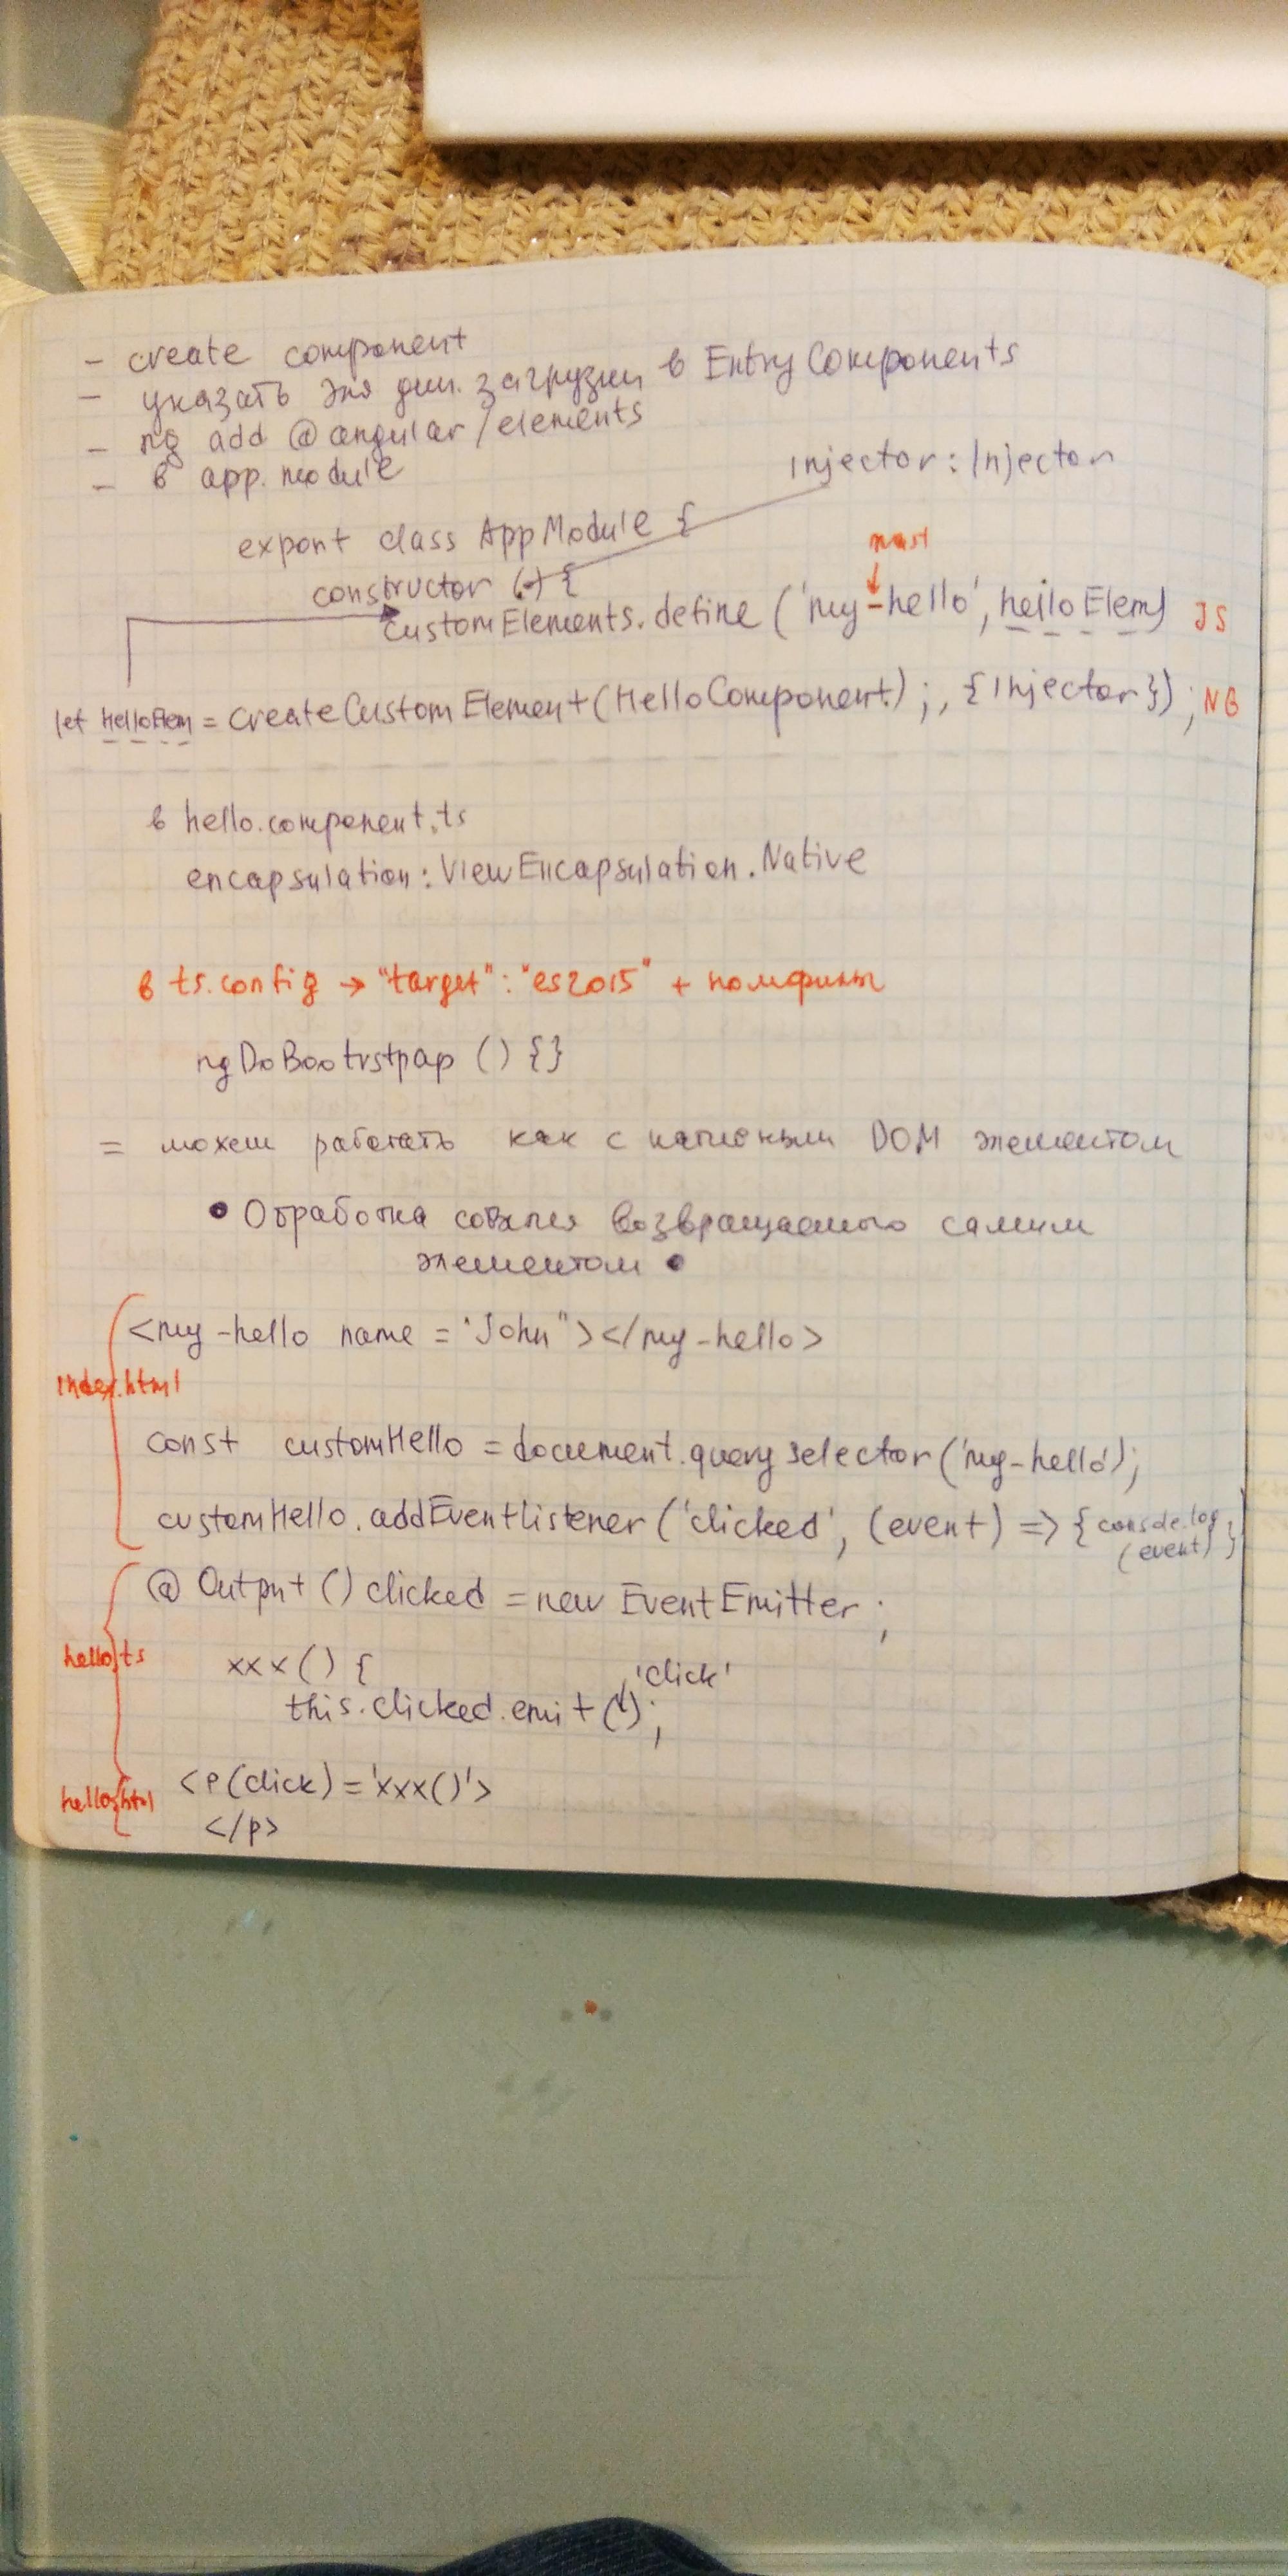 - create component
- указать для дин. загрузки в EntryComponents
- ng add @angular/elements
- в app.module
injector: Injector
export class AppModule {
must
constructor () {
customElements.define ('my-hello', helloElem) JS
let helloElem = createCustomElement(HelloComponent);, {Injector}); NG
в hello.component.ts
encapsulation: ViewEncapsulation.Native
в ts.config → "target": "es2015" + полифилы
ngDoBootrstpap () {}
= можем работать как с нативным DOM элементом
• Обработка события возвращаемого самим
элементом •
<my-hello name = "John"></my-hello>
index.html
const customHello = document.query selector ('my-hello');
customHello.addEventListener ('clicked', (event) => { console.log
(event) }
@ Output () clicked = new EventEmitter ;
hello.ts
xxx () {
'click'
this.clicked.emit ();
<p (click) = 'xxx()'>
hello.html
</p>